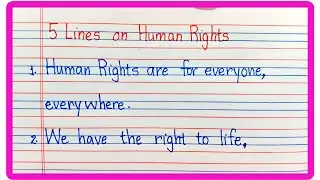 5 Lines on Human Rights
1. Human Rights are for everyone,
everywhere.
2. We have the right to life.